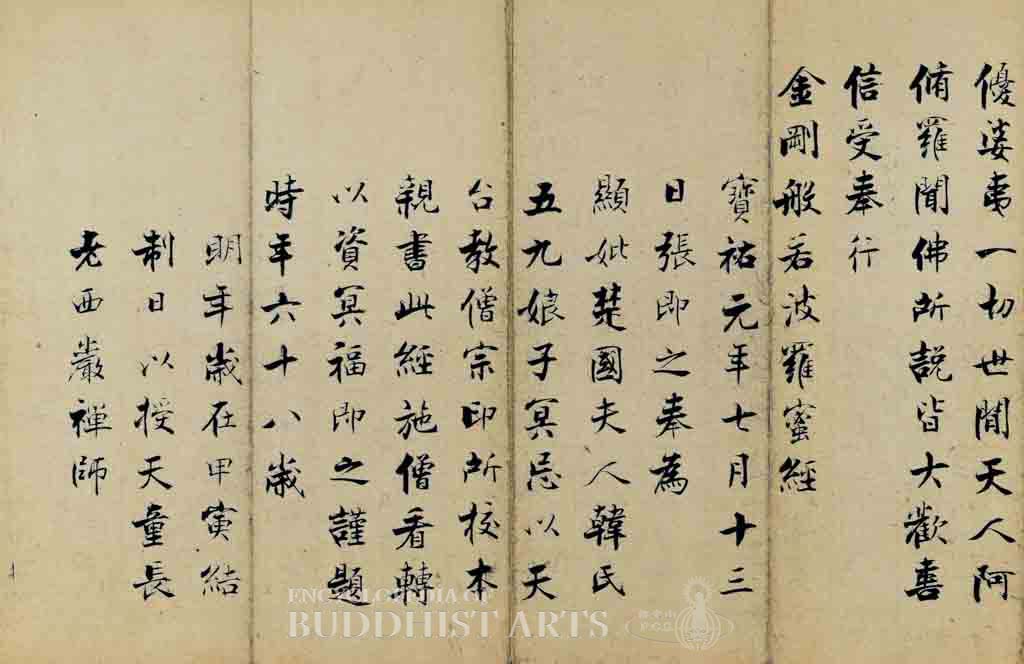 優婆夷一切世間天人阿
脩羅聞佛所說皆大歡喜
信受奉行
金剛般若波羅蜜經
寶祐元年七月十三
日張即之奉為
顯妣楚國夫人韓氏
五九娘子冥忌以天
台教僧宗印所校本
親書此經施僧看轉
以資冥福即之謹題
時年六十八歲
明年歲在甲寅結
制日以授天童長
老西巖禪師
ENCYCLOPEDIA OF
BUDDHIST ARTS